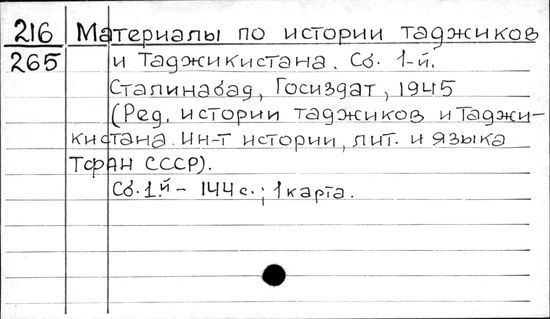 216 Материалы по истории таджиков
265 и Таджикистана. Сб. 1-й.
Сталинабад, Госиздат, 1945
(Ред. истории таджиков и Таджи-
кистана. Ин-т истории, лит. и языка
ТФАН СССР).
Сб. 1й - 144 с.; 1 карта.